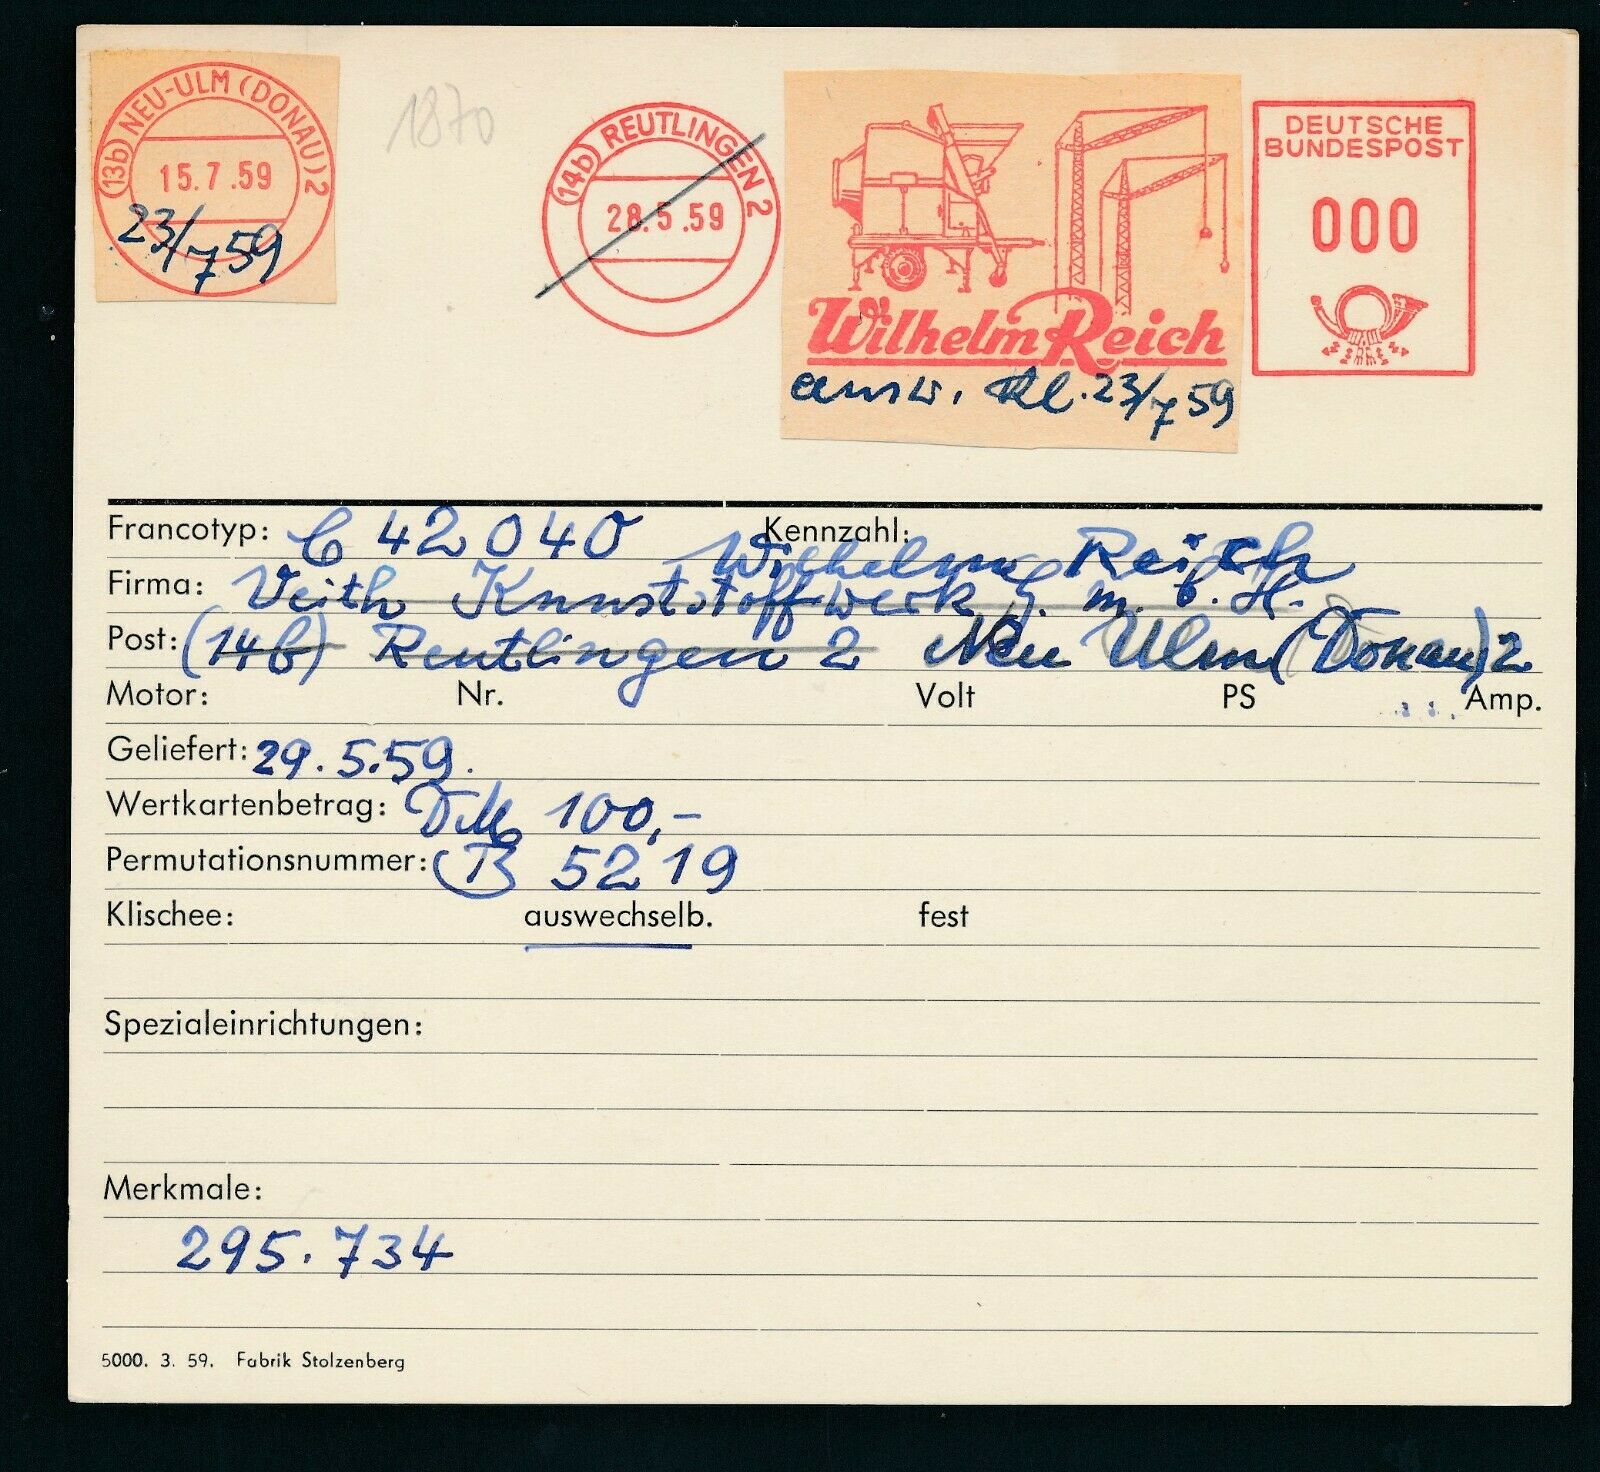 (13b) NEU-ULM (DONAU) 2
15.7.59
23/7 59
1870
(14b) REUTLINGEN 2
28.5.59
Wilhelm Reich
ausw. Kl. 23/7 59
DEUTSCHE
BUNDESPOST
000
Francotyp: C 42040 Kennzahl:
Wilhelm Reich
Firma: Veith Kunststoffwerk G. m. b. H.
Post: (14b) Reutlingen 2 Neu Ulm (Donau) 2
Motor: Nr. Volt PS Amp.
Geliefert: 29.5.59.
Wertkartenbetrag: DM 100,-
Permutationsnummer: B 5219
Klischee: auswechselb. fest
Spezialeinrichtungen:
Merkmale:
295.734
5000. 3. 59. Fabrik Stolzenberg